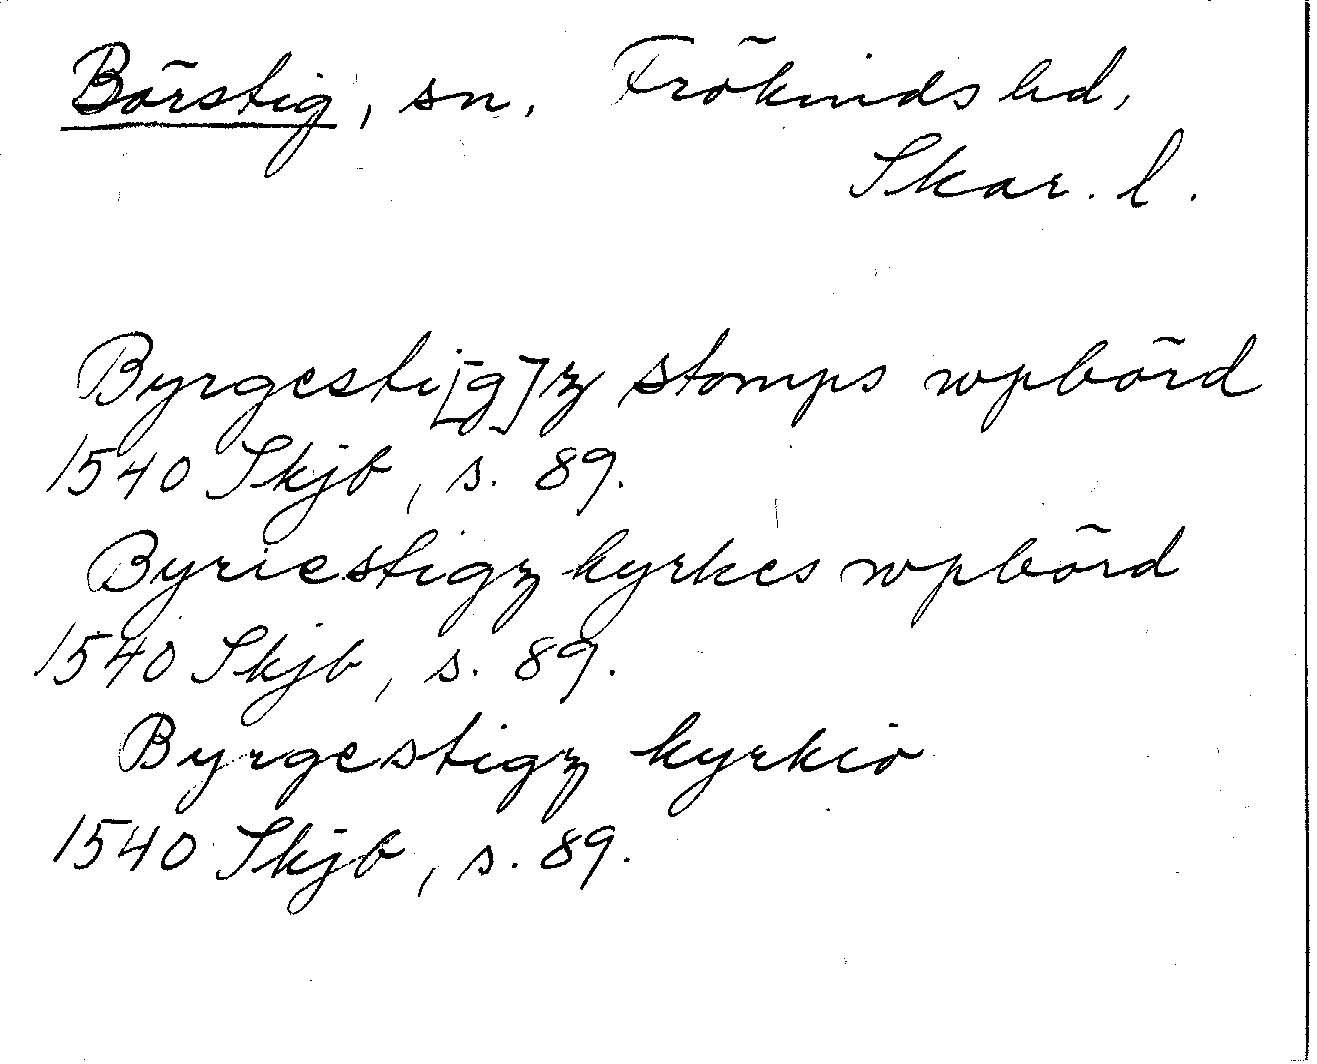 Börstig, sn. Frökinds hd,
Skar. l.
Byrgesti[g]z stomps wpbörd
1540 Skjb, s. 89.
Byriestigz kyrkes wpbörd
1540 Skjb, s. 89.
Byrgestigz kyrkio
1540 Skjb, s. 89.